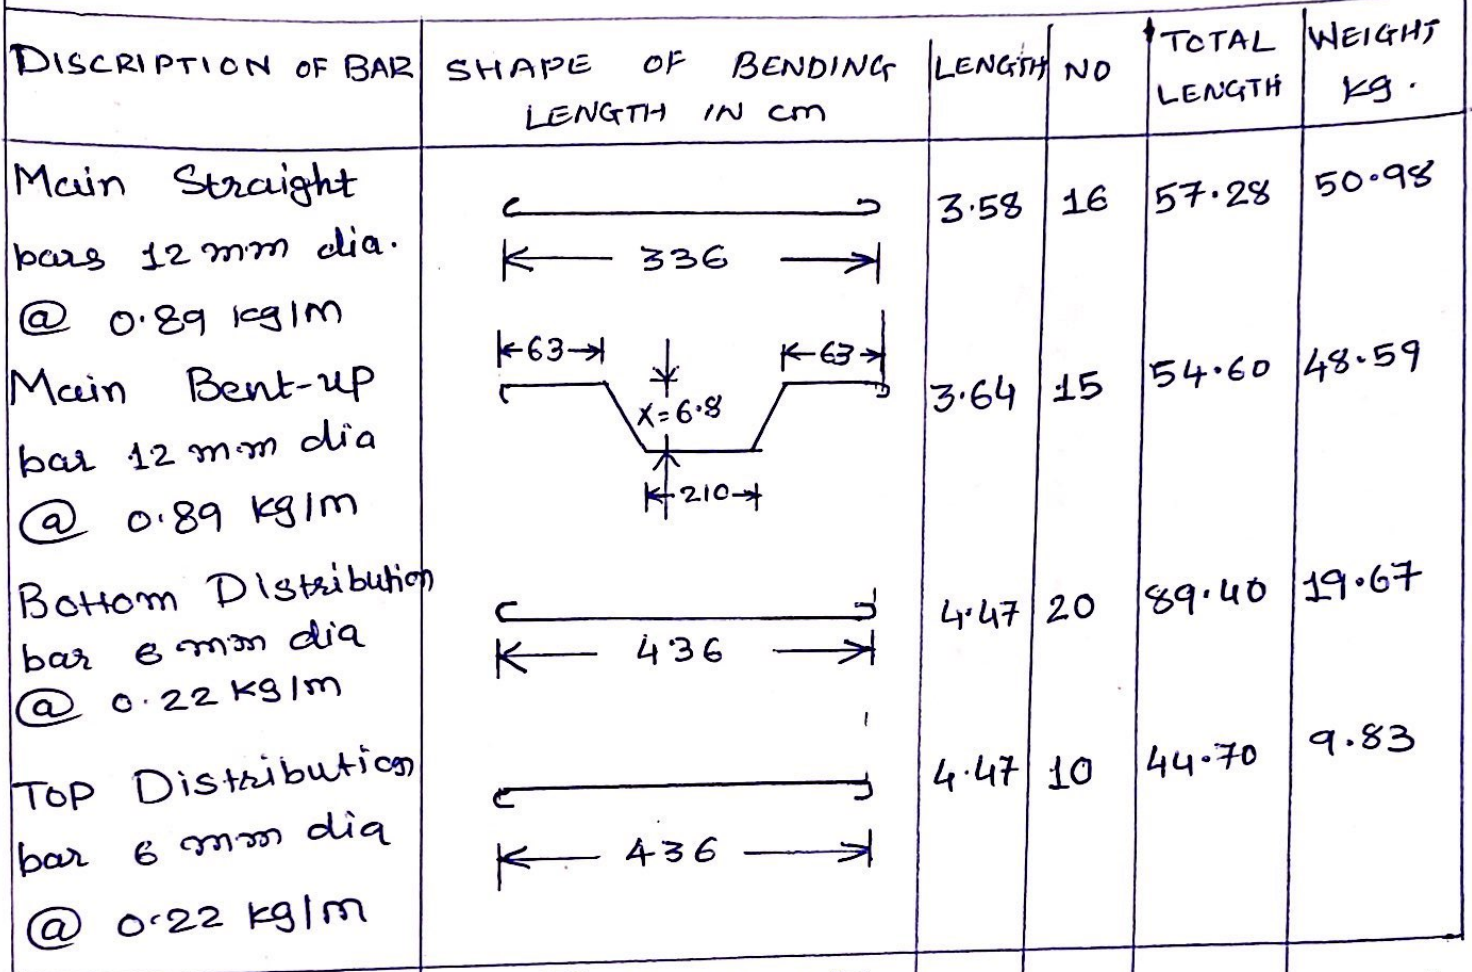 DISCRIPTION OF BAR
SHAPE OF BENDING
LENGTH IN cm
LENGTH
NO
TOTAL
LENGTH
WEIGHT
kg.
Main Straight
bars 12 mm dia.
@ 0.89 kg/m
336
3.58
16
57.28
50.98
Main Bent-up
bar 12 mm dia
@ 0.89 kg/m
63
63
X=6.8
210
3.64
15
54.60
48.59
Bottom Distribution
bar 6 mm dia
@ 0.22 kg/m
436
4.47
20
89.40
19.67
TOP Distribution
bar 6 mm dia
@ 0.22 kg/m
436
4.47
10
44.70
9.83